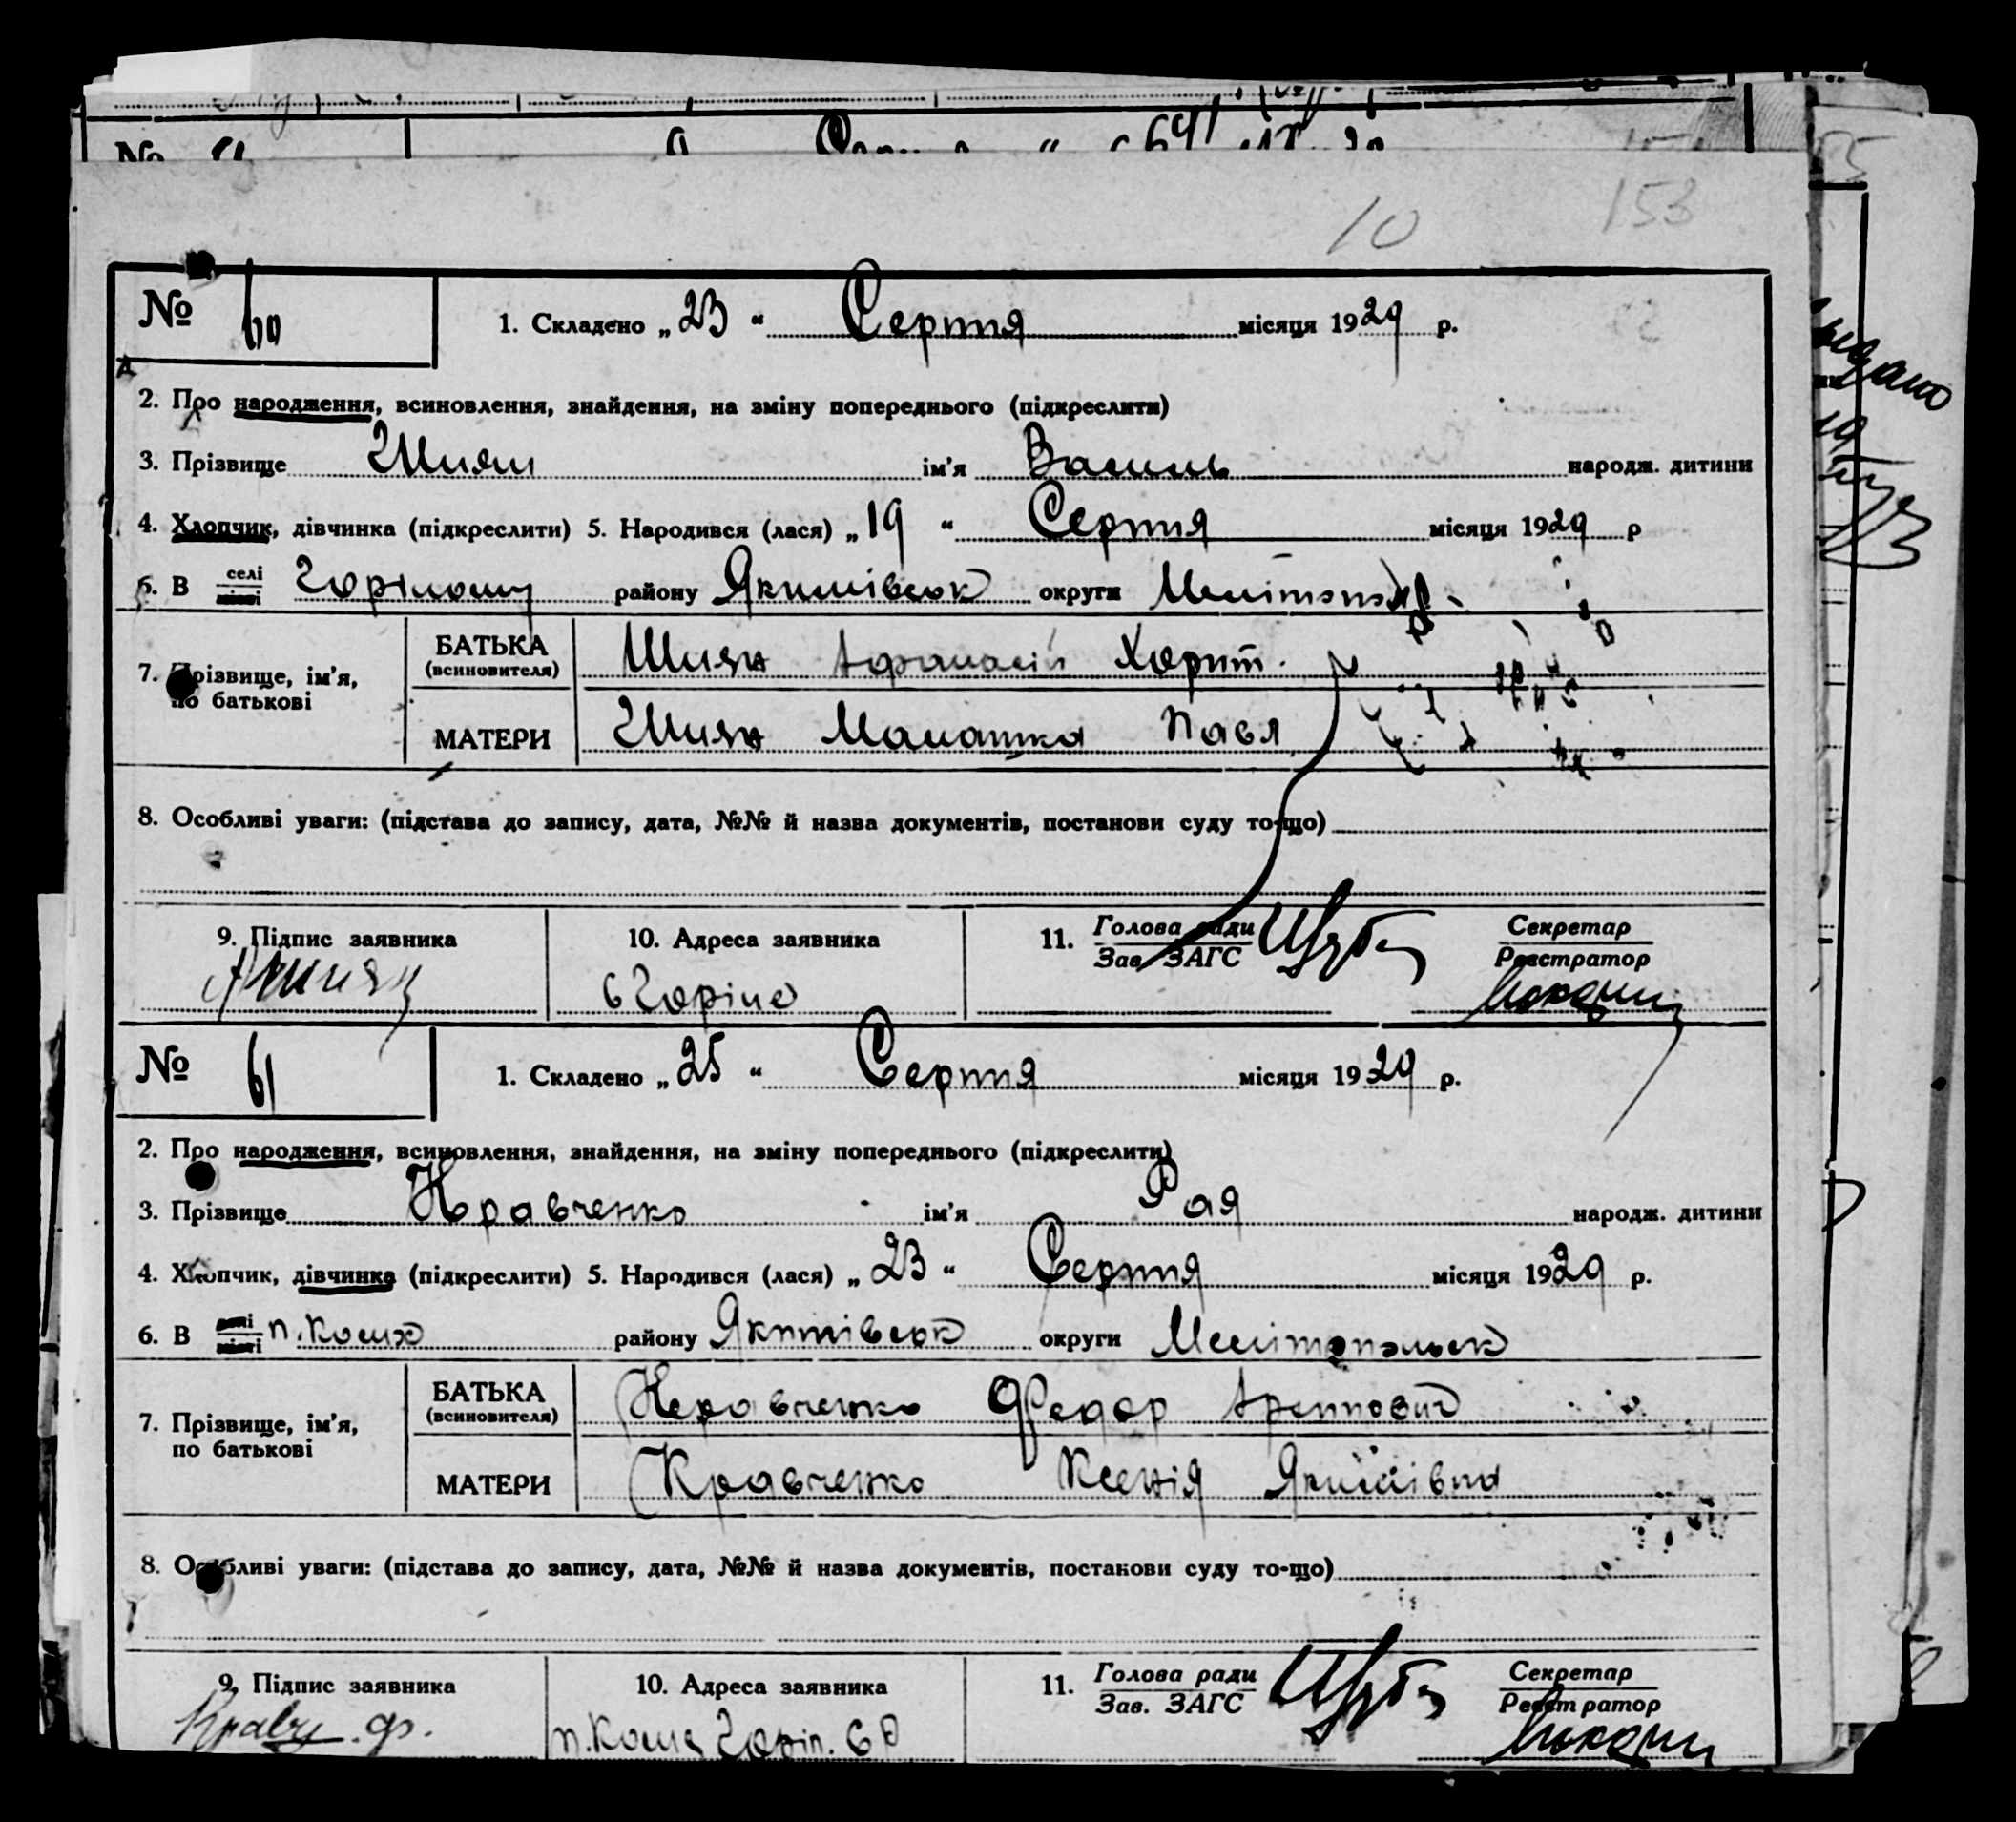 10 153
№ 60
1. Складено „23“ Серпня місяця 1929 р.
2. Про народження, всиновлення, знайдення, на зміну попереднього (підкреслити)
3. Прізвище Шиян ім'я Василь народж. дитини
4. Хлопчик, дівчинка (підкреслити) 5. Народився (лася) „19“ Серпня місяця 1929 р
6. В селі міті районy Якимівськ округи
7. Прізвище, ім'я, по батькові
БАТЬКА (всиновителя) Шиян Афанасій Хорит.
МАТЕРИ Шиян Малашка Павл
8. Особливі уваги: (підстава до запису, дата, №№ й назва документів, постанови суду то-що)
9. Підпис заявника
10. Адреса заявника
11. Голова ради Зав. ЗАГС
Секретар Реєстратор
№ 61
1. Складено „25“ Серпня місяця 1929 р.
2. Про народження, всиновлення, знайдення, на зміну попереднього (підкреслити)
3. Прізвище Кравченко ім'я Рая народж. дитини
4. Хлопчик, дівчинка (підкреслити) 5. Народився (лася) „23“ Серпня місяця 1929 р.
6. В п. району Якимівськ округи Мелітопольск
7. Прізвище, ім'я, по батькові
БАТЬКА (всиновителя) Кравченко Федор
МАТЕРИ Кравченко Ксенія Якимівна
8. Особливі уваги: (підстава до запису, дата, №№ й назва документів, постанови суду то-що)
9. Підпис заявника
10. Адреса заявника
11. Голова ради Зав. ЗАГС
Секретар Реєстратор